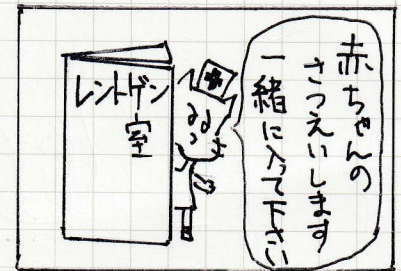 赤ちゃんの
さつえいします
一緒に入って下さい
レントゲン
室